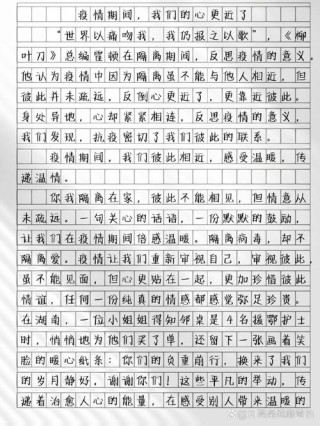 疫情期间，我们的心更近了
“世界以痛吻我，我仍报之以歌”，《柳
叶刀》总编霍顿在隔离期间，反思疫情的意义。
他认为疫情中因为隔离虽不能与他人相近，但
彼此并未疏远，反倒心更近了，更靠近彼此。
身处异地，心却紧紧相连，反思疫情的意义，
我们发现，抗疫密切了我们彼此的联系。
疫情期间，我们彼此相近，感受温暖，传
递温情。
你我隔离在家，彼此不能相见，但情意从
未疏远。一句关心的话语，一份默默的鼓励，
让我们在疫情期间倍感温暖。隔离病毒，却不
隔离爱。疫情让我们重新审视自己，审视彼此，
虽不能见面，但心更贴在一起，更加珍惜彼此
情谊，任何一份纯真的情感都感觉弥足珍贵。
在湖南，一位小姐姐得知邻桌是4名援鄂护士
时，悄悄地为他们买了单，还留下一张画着笑
脸的暖心纸条：你们的负重前行，换来了我们
的岁月静好，谢谢你们！这些平凡的举动，传
递着治愈人心的能量，在感受别人带来温暖的